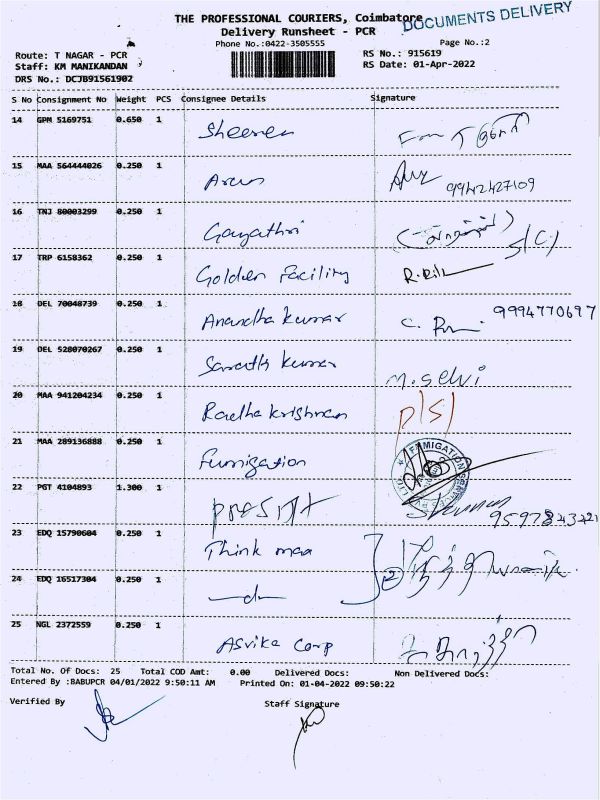 THE PROFESSIONAL COURIERS, Coimbatore
DOCUMENTS DELIVERY
Delivery Runsheet - PCR
Phone No.:0422-3505555
Page No.:2
Route: T NAGAR - PCR
RS No.: 915619
Staff: KM MANIKANDAN
RS Date: 01-Apr-2022
DRS No.: DCJB91561902
S No Consignment No Weight PCS Consignee Details Signature
14 GPM 5169751 0.650 1 Sheeren
15 MAA 564444026 0.250 1 Arun 9942427109
16 TNJ 80003299 0.250 1 Gayathri
17 TRP 6158362 0.250 1 Golden Facility
18 DEL 70048739 0.250 1 Anandha kumar 9994770697
19 DEL 528070267 0.250 1 Sarath kumar M. Selvi
20 MAA 941204234 0.250 1 Radha krishnan
21 MAA 289136888 0.250 1 Fumigation
22 PGT 4104893 1.300 1
23 EDQ 15790604 0.250 1 Think maa
24 EDQ 16517304 0.250 1 —d—
25 NGL 2372559 0.250 1 Asvika Corp
Total No. Of Docs: 25 Total COD Amt: 0.00 Delivered Docs: Non Delivered Docs:
Entered By :BABUPCR 04/01/2022 9:50:11 AM Printed On: 01-04-2022 09:50:22
Verified By Staff Signature